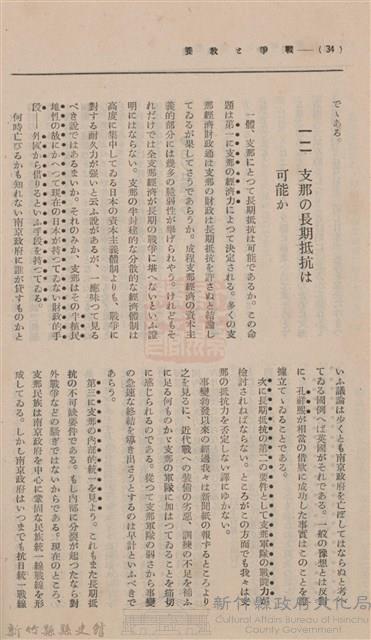 (34)——戰爭と教養
でゝある。
一二 支那の長期抵抗は
可能か
一體、支那にとつて長期抵抗は可能であるか。この命
題は第一に支那の經濟力によつて決定される。多くの支
那經濟財政通は支那の財政は長期抵抗を許さぬと結論し
てゐるが果してさうであらうか。成程支那經濟の資本主
義的部分には幾多の脆弱性が擧げられやう。けれどもそ
れだけでは全支那經濟が長期の戰爭に堪へないといふ證
明にはならない。支那の半封建的な分散的な經濟體制は
高度に集中してゐる日本の資本主義體制よりも、戰爭に
對する耐久力が强いと云ふ說があるが、一應味つて見る
べき說ではあるまいか。それのみか、支那はその半植民
地性の故にかへつて現在の日本が持てゐない財政的手
段——外國から借りるといふ手段を持つてゐる。
何時亡びるかも知れない南京政府に誰が貸すものかと
いふ議論は歩くとも南京政府を亡ぼしてはならぬと考へ
てゐる國例へば英國がそれである。一般の豫想とは反對
に、孔祥熙が相當の借款に成功した事實はこのことを實
據立てゐることである。
次に長期抵抗の第二の要件として支那軍隊の戰鬪力が
檢討されねばならない。ところがこの方面でも我々は支
那の抵抗力を否定しない譯にゆかない。
事變勃發以來の經過我々は新聞紙の報ずるところより
之を見るに、近代戰への裝備の劣惡、訓練の不足を補ふ
に足る何ものかゞ支那の軍隊に加はつてゐることを痛切
に感じられるのである。從つて支那軍隊の弱さから事變
の急速な終結を導き出さうとするのは早計といふべきで
あらう。
第三に支那の內部的統一を見よう。これもまた長期抵
抗の不可缺要件である。もし內部に分裂が起つたなら對
外戰爭などの騷ぎではないからである。現在のところ、
支那民族は南京政府を中心に鞏固な民族統一戰線を形
成してゐる。しかし南京政府はいつまでも抗日統一戰線
新竹縣縣史館
新竹縣政府文化局
Cultural Affairs Bureau of Hsinchu
County Government